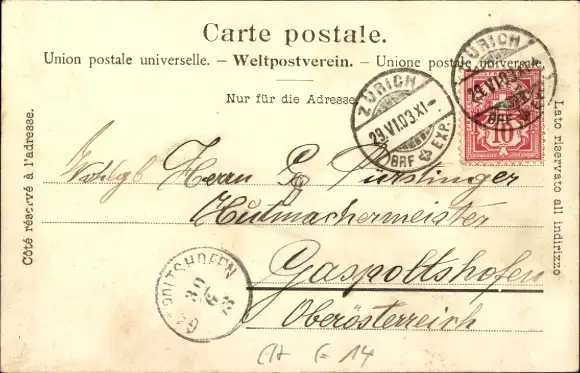 Carte postale.
Union postale universelle. – Weltpostverein. – Unione postale universale.
Nur für die Adresse.
Côté réservé à l'adresse.
Lato riservato all indirizzo
ZÜRICH
29.VI.03.XI–
BRF EXP.
ZÜRICH
29.VI.03.XI–
BRF EXP.
10
Herrn
Hutmachermeister
Gaspoltshofen
Oberösterreich
30
6
14